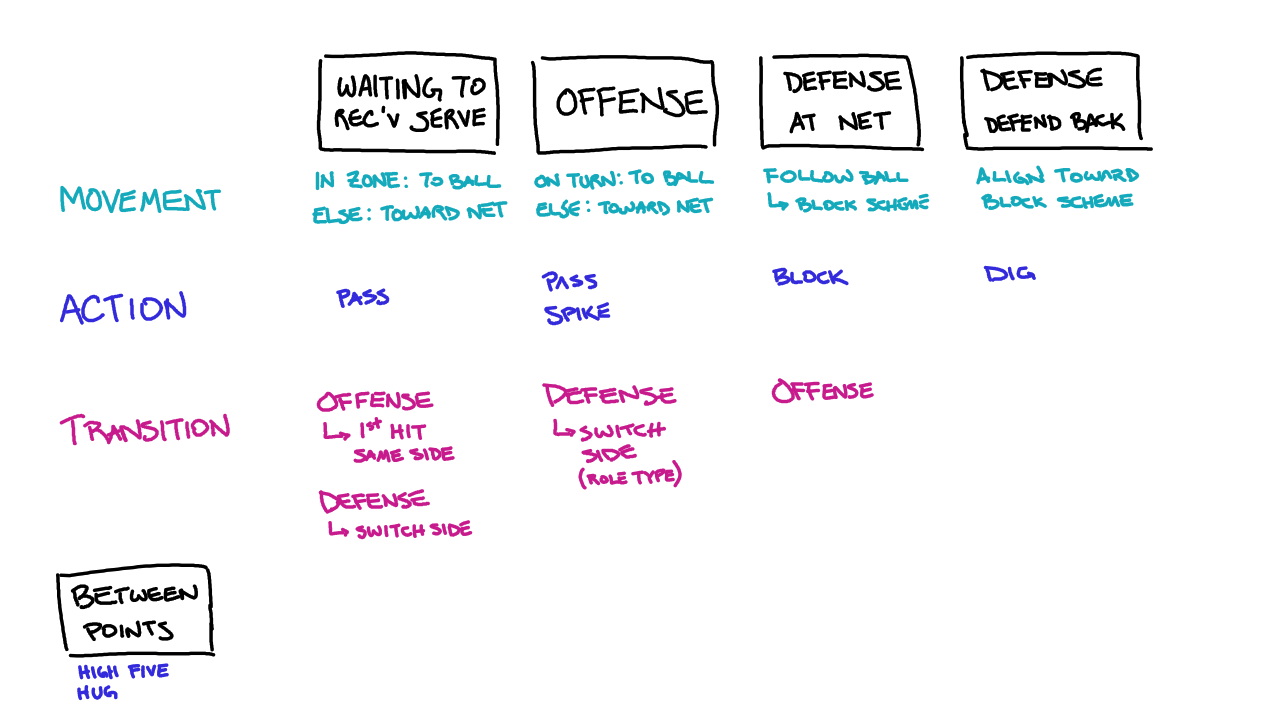 WAITING TO
REC'V SERVE
OFFENSE
DEFENSE
AT NET
DEFENSE
DEFEND BACK
MOVEMENT
IN ZONE: TO BALL
ELSE: TOWARD NET
ON TURN: TO BALL
ELSE: TOWARD NET
FOLLOW BALL
↳ BLOCK SCHEME
ALIGN TOWARD
BLOCK SCHEME
ACTION
PASS
PASS
SPIKE
BLOCK
DIG
TRANSITION
OFFENSE
↳ 1st HIT
SAME SIDE
DEFENSE
↳ SWITCH SIDE
DEFENSE
↳ SWITCH
SIDE
(ROLE TYPE)
OFFENSE
BETWEEN
POINTS
HIGH FIVE
HUG